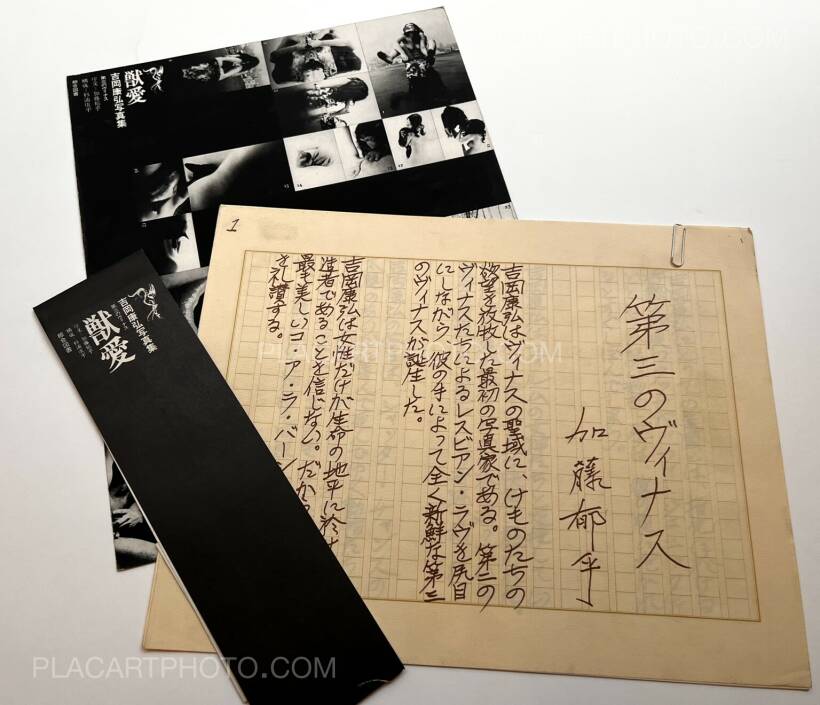 獣愛
吉岡康弘写真集
第三のヴィナス
序文・加藤郁乎
構成・杉浦康平
1
第三のヴィナス
加藤郁乎
吉岡康弘はヴィナスの聖域に、けものたちの
欲望を放牧した最初の写真家である。第二の
ヴィナスたちによるレスビアン・ラヴを尻目
にしながら、彼の手によって全く新鮮な第三
のヴィナスが誕生した。
吉岡康弘は女性だけが生命の地平に
造者であることを信じない。だから
最も美しいコ・ア・ラ・バーン
を礼讃する。
吉岡康弘写真集
獣愛
第三のヴィナス
PLACARTPHOTO.COM
PLACARTPHOTO.COM